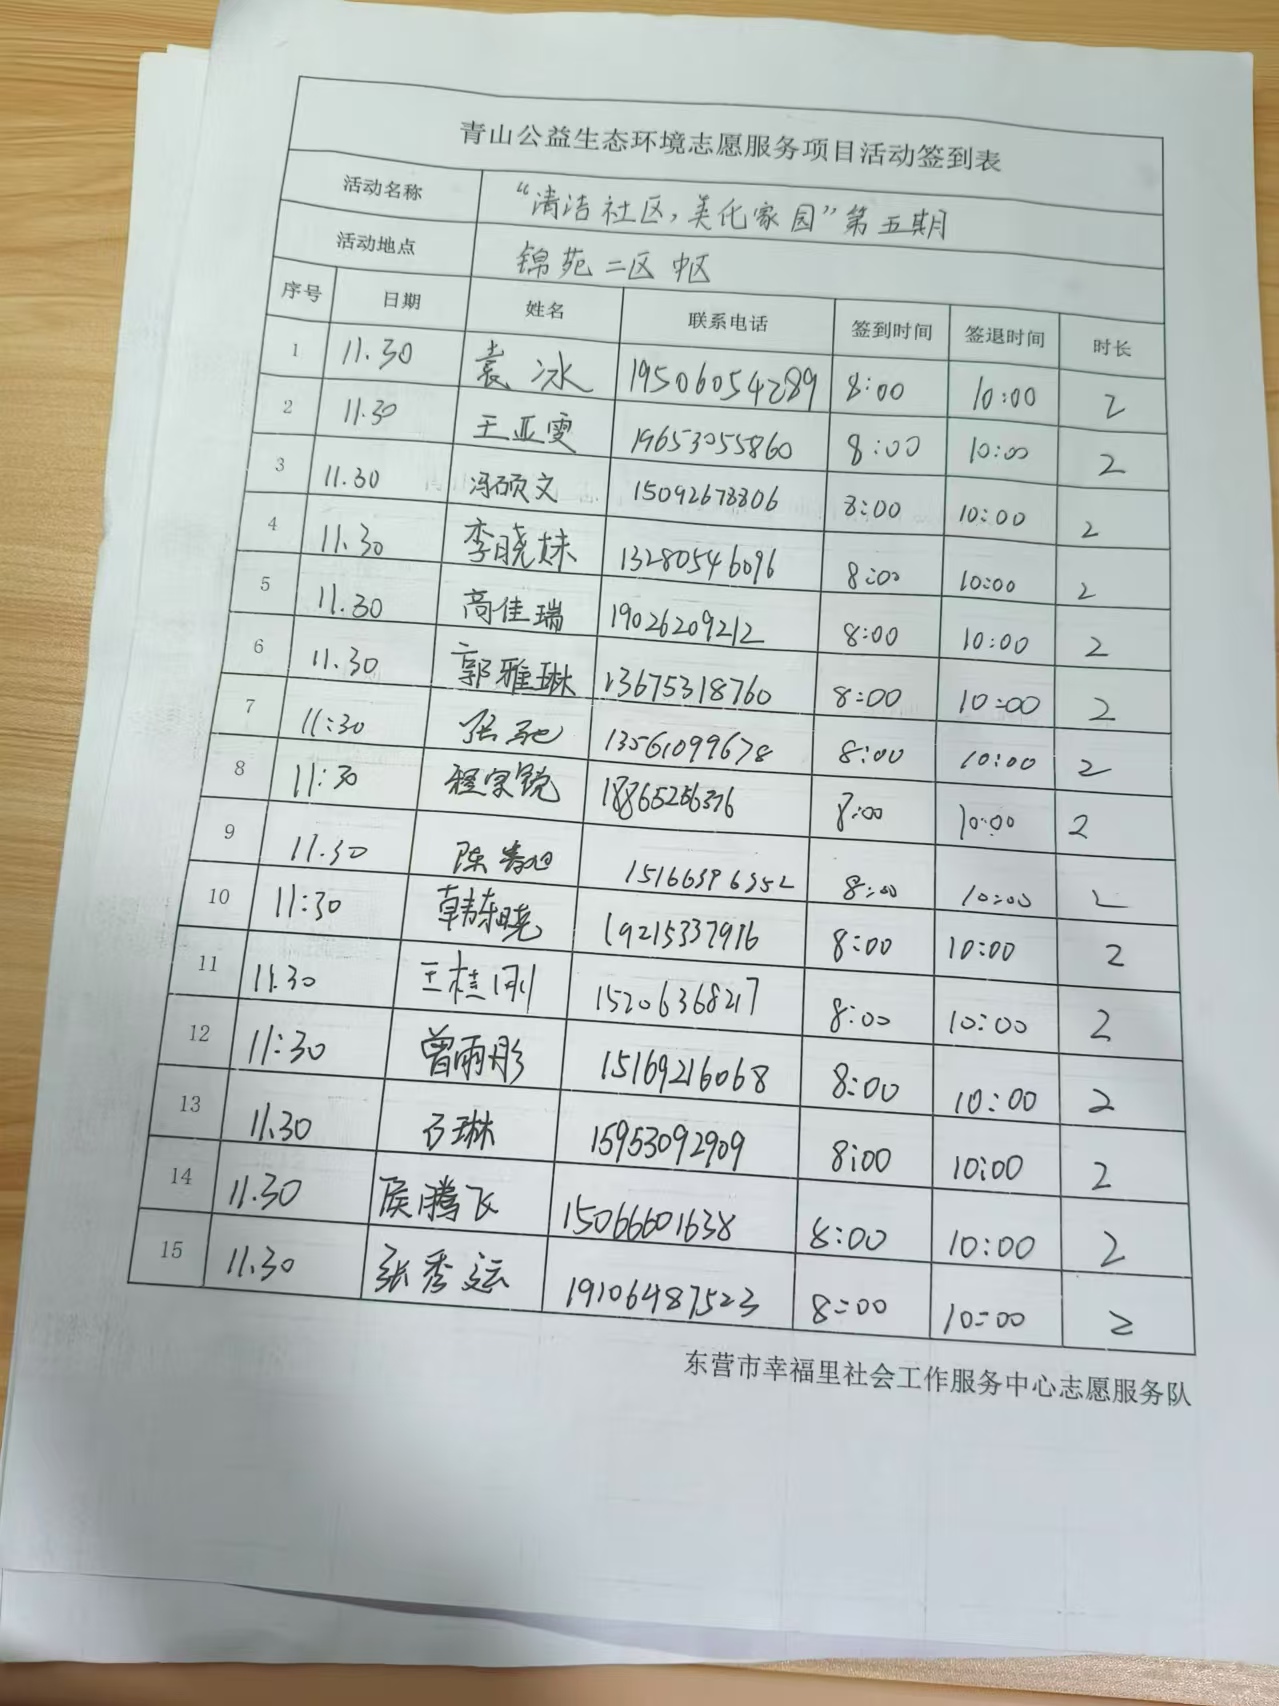 青山公益生态环境志愿服务项目活动签到表
活动名称 “清洁社区,美化家园”第五期
活动地点 锦苑二区中区
序号 日期 姓名 联系电话 签到时间 签退时间 时长
1 11.30 袁冰 19506054289 8:00 10:00 2
2 11.30 王亚雯 19653055860 8:00 10:00 2
3 11.30 冯硕文 15092678806 8:00 10:00 2
4 11.30 李晓妹 13280546096 8:00 10:00 2
5 11.30 高佳瑞 19026209212 8:00 10:00 2
6 11.30 郭雅琳 13675318760 8:00 10:00 2
7 11:30 张驰 13561099678 8:00 10:00 2
8 11:30 程宗锐 18865256376 8:00 10:00 2
9 11.30 陈 8:00 10:00 2
10 11:30 韩晓 19215337916 8:00 10:00 2
11 11.30 王桂刚 15206368217 8:00 10:00 2
12 11:30 曾雨彤 15169216068 8:00 10:00 2
13 11.30 石琳 15953092909 8:00 10:00 2
14 11.30 侯腾飞 15066601638 8:00 10:00 2
15 11.30 张秀运 19106487523 8:00 10:00 2
东营市幸福里社会工作服务中心志愿服务队